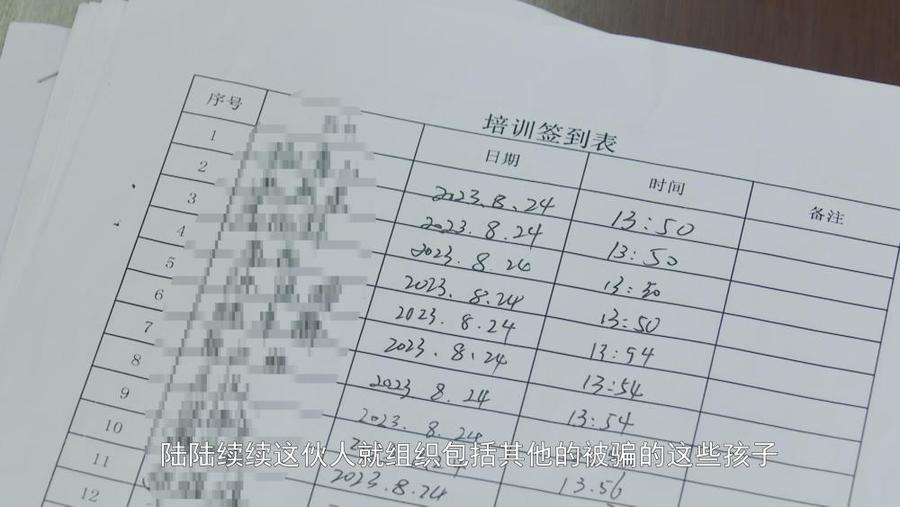 培训签到表
序号 日期 时间 备注
1 2023.8.24 13:50
2 2023.8.24 13:50
3 2023.8.24 13:50
4 2023.8.24 13:50
5 2023.8.24 13:54
6 2023.8.24 13:54
7 2023.8.24 13:54
8 2023.8.24
9
10 2023.8.24 13.56
11
12
陆陆续续这伙人就组织包括其他的被骗的这些孩子